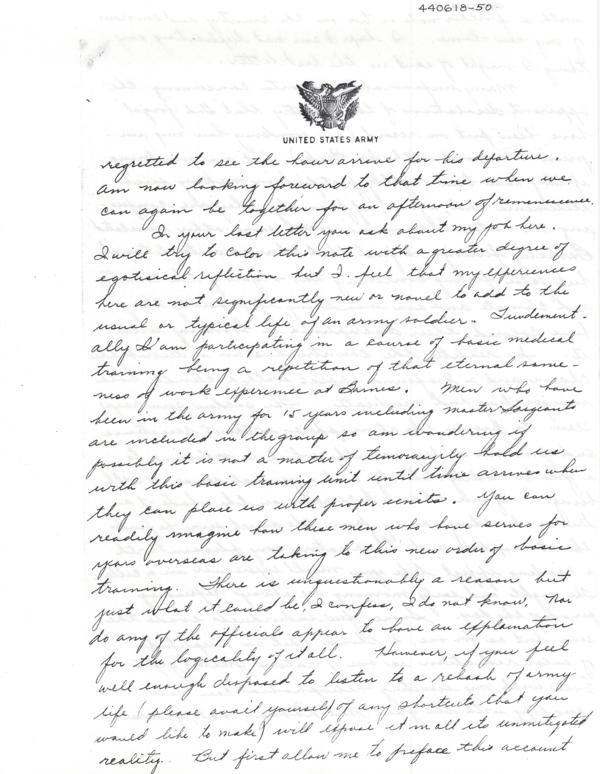 440618-50
UNITED STATES ARMY
regretted to see the hour arrive for his departure.
Am now looking foreward to that time when we
can again be together for an afternoon of remenescence.
In your last letter you ask about my job here.
I will try to color this note with a greater degree of
egotisical refliction but I feel that my experiences
here are not significantly new or novel to add to the
usual or typical life of an army soldier. Fundement-
ally I am participating in a course of basic medical
training being a repetition of that eternal same-
ness of work experience at Barnes. Men who have
been in the army for 15 years including master Sargeants
are included in the group so am wondering if
possibly it is not a matter of temoraryily hold us
with this basic training unit until time arrives when
they can place us with proper units. You can
readily imagine how these men who have serves for
years overseas are taking to this new order of basic
training. There is unquestionably a reason but
just what it could be, I confess, I do not know. Nor
do any of the officials appear to have an explanation
for the logicality of it all. However, if you feel
well enough disposed to listen to a rehash of army
life (please avail yourself of any shortcuts that you
would like to make) will expose it in all its unmitigated
reality. But first allow me to preface this account